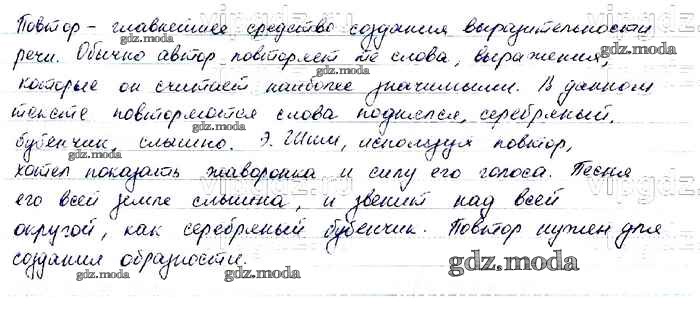 Повтор - главнейшее средство создания выразительности
речи. Обычно автор повторяет те слова, выражения,
которые он считает наиболее значимыми. В данном
тексте повторяются слова поднялся, серебряный,
бубенчик, слышно. Э. Шим, используя повтор,
хотел показать жаворонка и силу его голоса. Песня
его всей земле слышна, и звенит над всей
округой, как серебряный бубенчик. Повтор нужен для
создания образности.
gdz.moda
gdz.moda
gdz.moda
gdz.moda
gdz.moda
gdz.moda
gdz.moda
gdz.moda
gdz.moda
gdz.moda